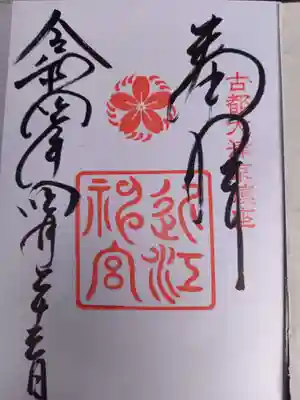 古都大津京鎮座
奉拝
近江
神宮
令和六年四月二十五日